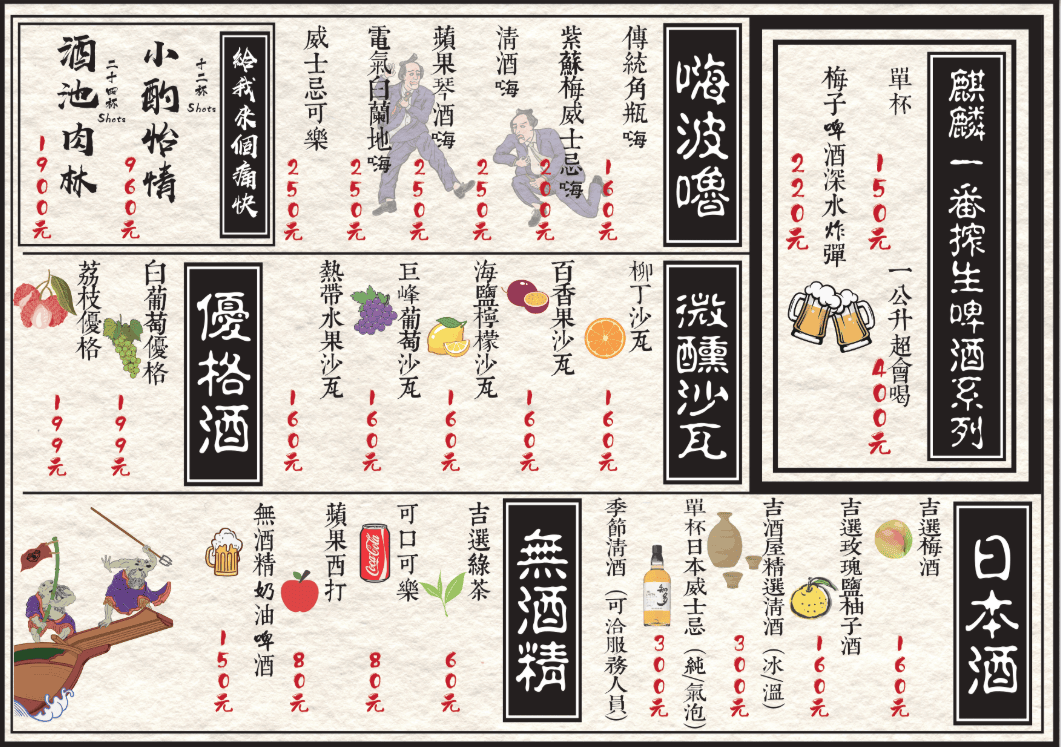 麒麟一番搾生啤酒系列
單杯
150元
一公升超會喝
400元
梅子啤酒深水炸彈
220元
嗨波嚕
傳統角瓶嗨
160元
紫蘇梅威士忌嗨
200元
清酒嗨
250元
蘋果琴酒嗨
250元
電氣白蘭地嗨
250元
威士忌可樂
250元
給我來個痛快
十二杯
Shots
小酌怡情
960元
二十四杯
Shots
酒池肉林
1900元
微醺沙瓦
柳丁沙瓦
160元
百香果沙瓦
160元
海鹽檸檬沙瓦
160元
巨峰葡萄沙瓦
160元
熱帶水果沙瓦
160元
優格酒
白葡萄優格
199元
荔枝優格
199元
日本酒
吉選梅酒
160元
吉選玫瑰鹽柚子酒
160元
吉酒屋精選清酒（冰/溫）
300元
單杯日本威士忌（純/氣泡）
300元
季節清酒（可洽服務人員）
無酒精
吉選綠茶
60元
可口可樂
Coca-Cola
80元
蘋果西打
80元
無酒精奶油啤酒
150元